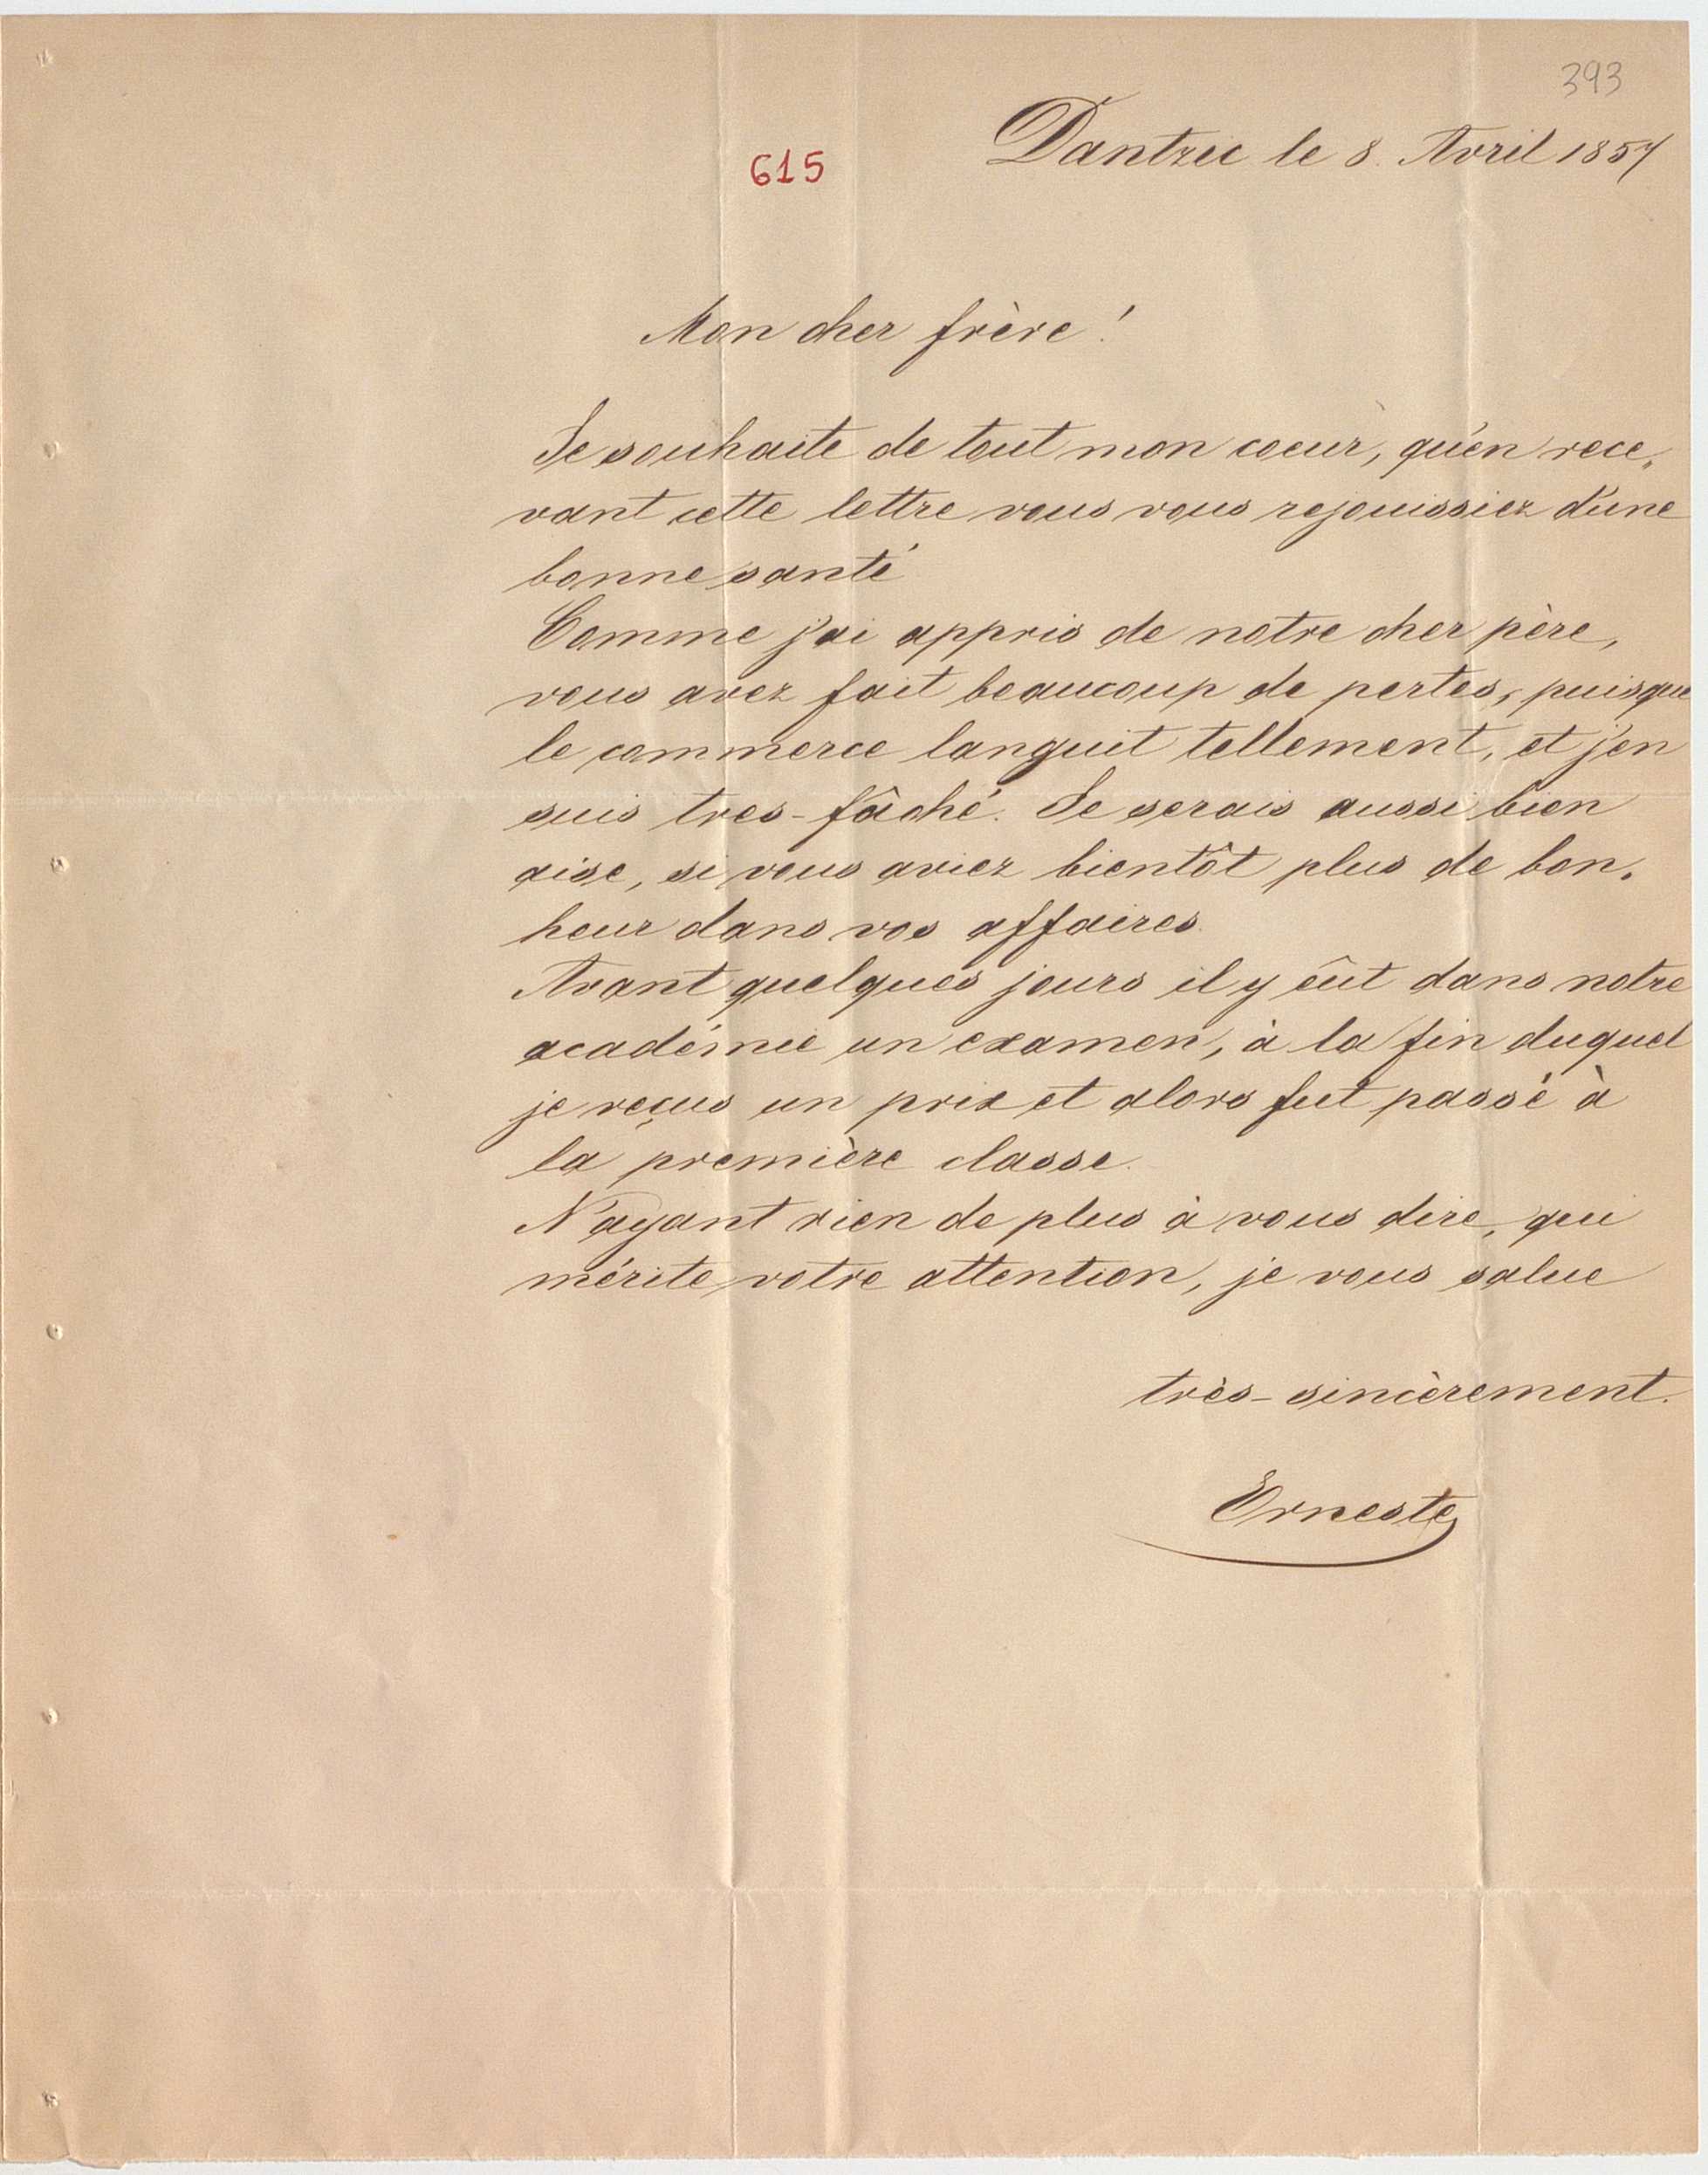 393
615
Dantzic le 8. Avril 1857
Mon cher frère!
Je souhaite de tout mon coeur, qu'en rece,
vant cette lettre vous vous rejouissiez d'une
bonne santé
Comme j'ai appris de notre cher père,
vous avez fait beaucoup de pertes, puisque
le commerce languit tellement, et j'en
suis tres-fâché. Je serais aussi bien
aise, si vous aviez bientôt plus de bon,
heur dans vos affaires.
Avant quelques jours il y eût dans notre
académie un examen, à la fin duquel
je reçus un prix et alors fut passé à
la première classe.
N'ayant rien de plus à vous dire, qui
mérite votre attention, je vous salue
très-sincèrement.
Erneste